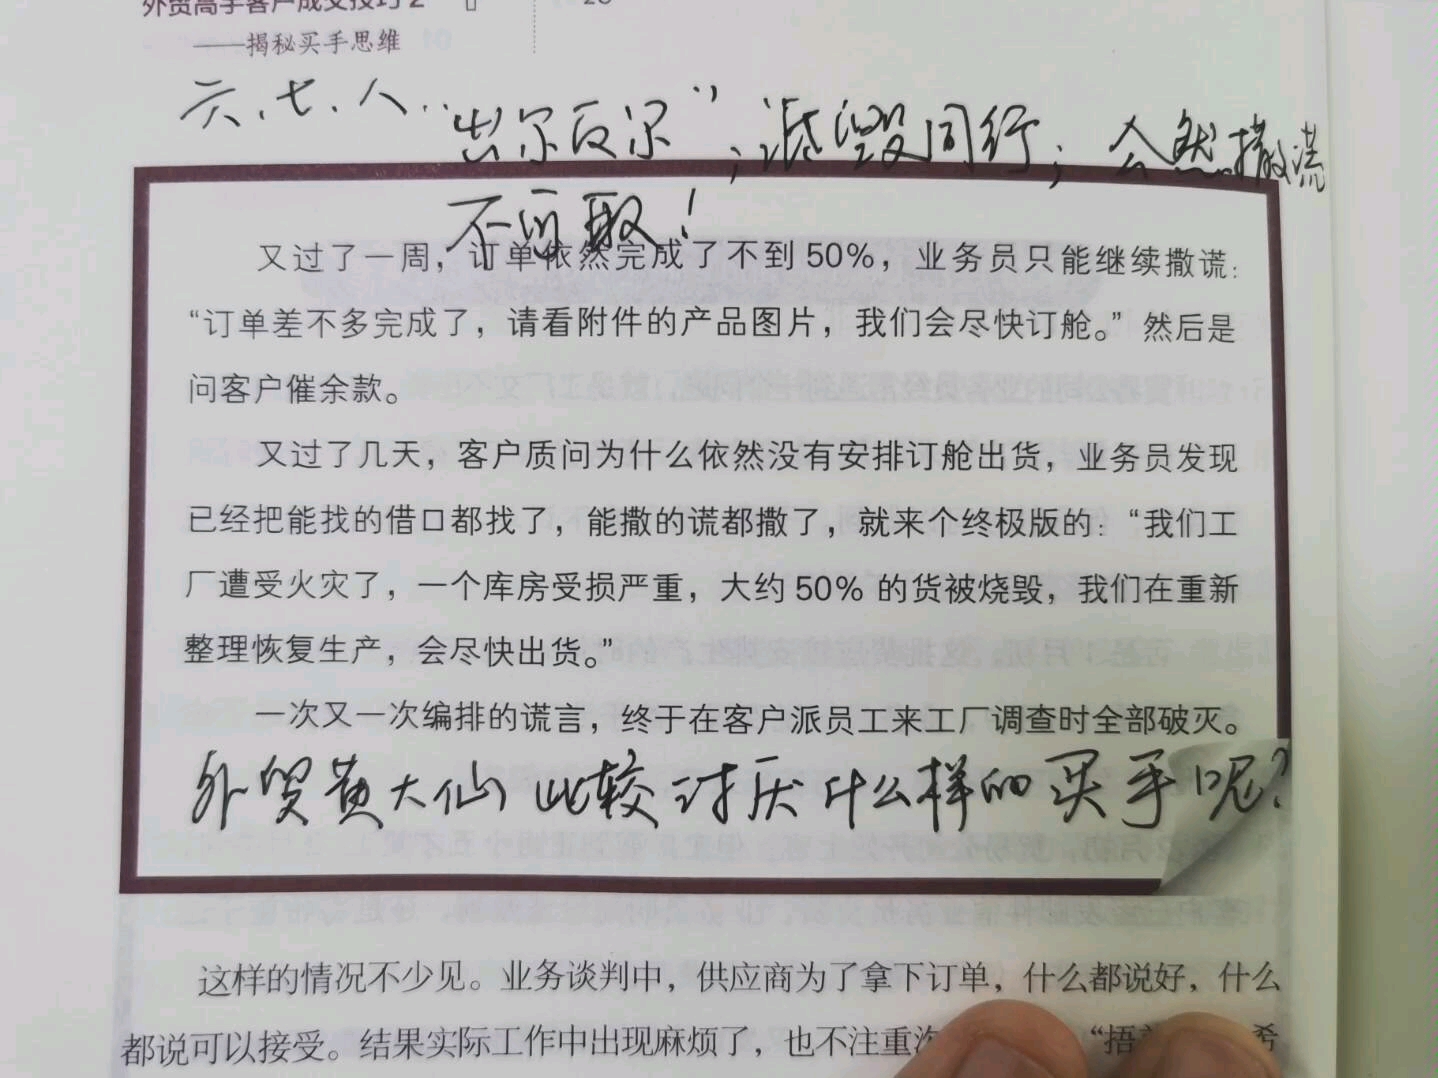 外贸高手客户成交技巧2
——揭秘买手思维
六、七、八..
"出尔反尔"；诋毁同行；公然撒谎
不可取！
又过了一周，订单依然完成了不到50%，业务员只能继续撒谎：
“订单差不多完成了，请看附件的产品图片，我们会尽快订舱。”然后是
问客户催余款。
又过了几天，客户质问为什么依然没有安排订舱出货，业务员发现
已经把能找的借口都找了，能撒的谎都撒了，就来个终极版的：“我们工
厂遭受火灾了，一个库房受损严重，大约50%的货被烧毁，我们在重新
整理恢复生产，会尽快出货。”
一次又一次编排的谎言，终于在客户派员工来工厂调查时全部破灭。
外贸黄大仙比较讨厌什么样的买手呢？
这样的情况不少见。业务谈判中，供应商为了拿下订单，什么都说好，什么
都说可以接受。结果实际工作中出现麻烦了，也不注重沟 “捂 希